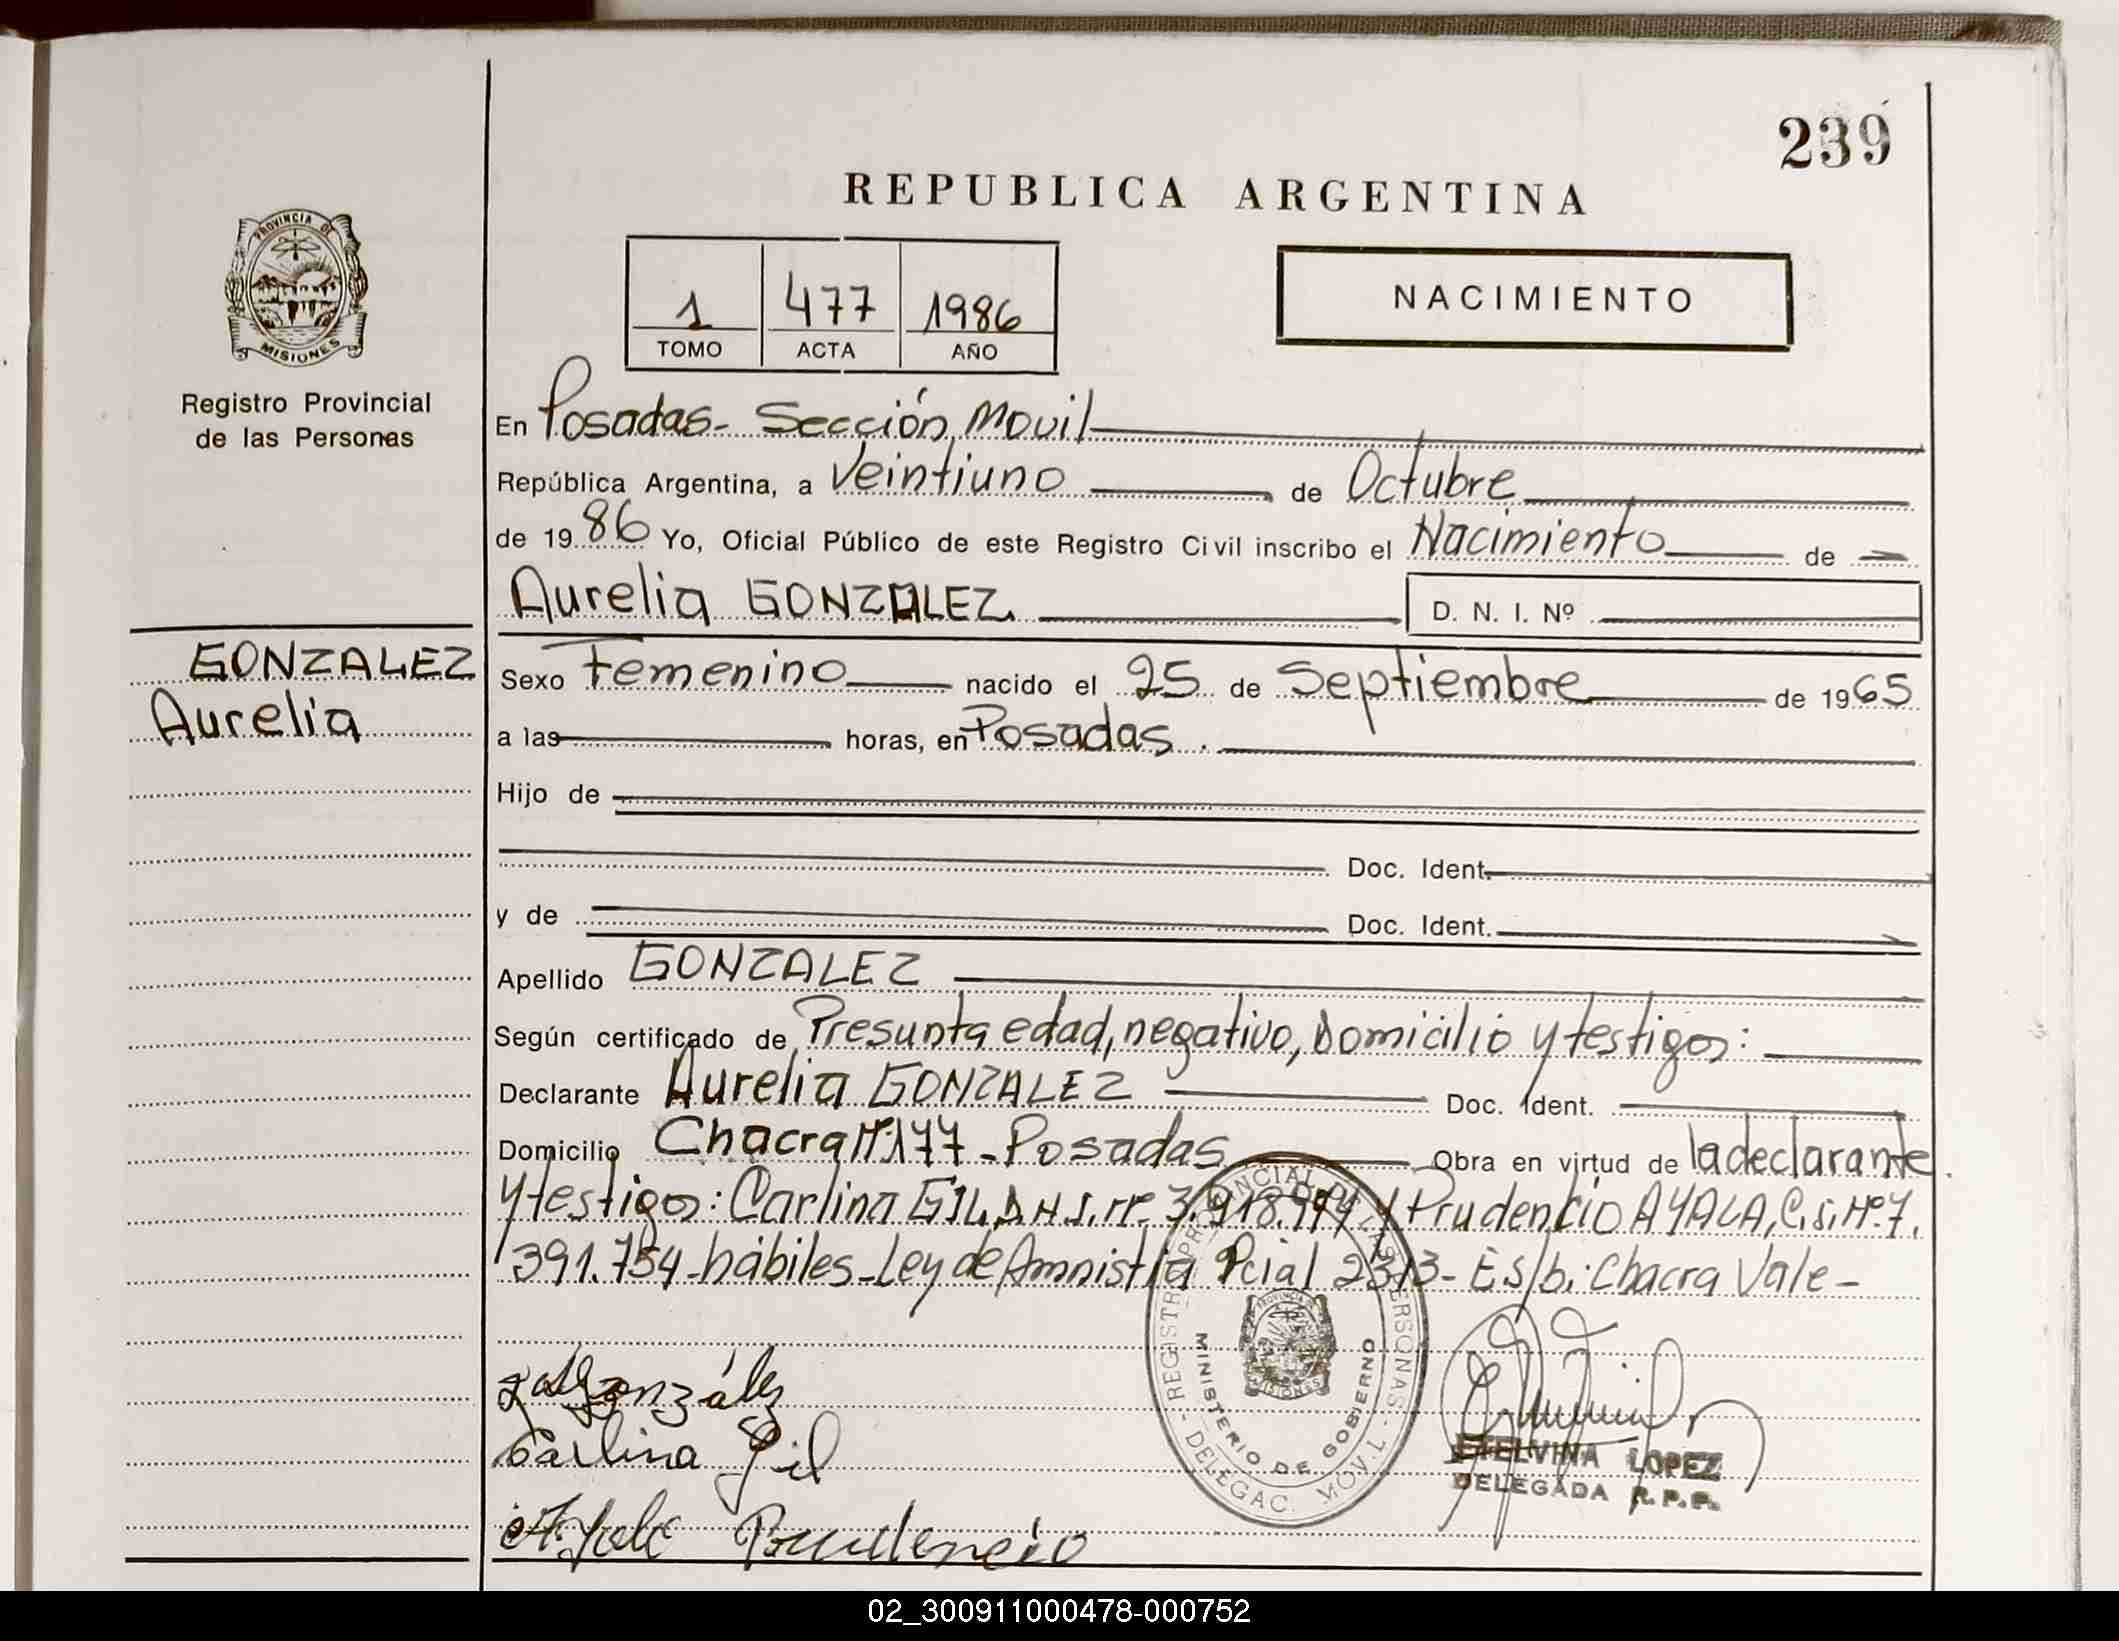 239
REPUBLICA ARGENTINA
PROVINCIA DE
MISIONES
Registro Provincial
de las Personas
1 477 1986
TOMO ACTA AÑO
NACIMIENTO
En Posadas- Sección Movil
República Argentina, a Veintiuno de Octubre
de 1986 Yo, Oficial Público de este Registro Civil inscribo el Nacimiento de
Aurelia GONZALEZ. D. N. I. Nº
GONZALEZ
Aurelia
Sexo Femenino nacido el 25 de Septiembre de 1965
a las horas, en Posadas.
Hijo de
Doc. Ident.
y de Doc. Ident.
Apellido GONZALEZ
Según certificado de Presunta edad, negativo, Domicilio y testigos:
Declarante Aurelia GONZALEZ Doc. Ident.
Domicilio Chacra Nº 177 - Posadas Obra en virtud de la declarante
y testigos: Carlina GIL, D.N.I. Nº 3.918.974 y Prudencio AYALA, C.I. Nº 7.
391.754 - hábiles - Ley de Amnistía Pcial 2313 - E.S/b: Chacra Vale -
González
Carlina Gil
Ayala Prudencio
REGISTRO PROVINCIAL DE LAS PERSONAS - DELEGAC. MOVIL
MINISTERIO DE GOBIERNO
ETELVINA LOPEZ
DELEGADA R.P.P.
02_300911000478-000752